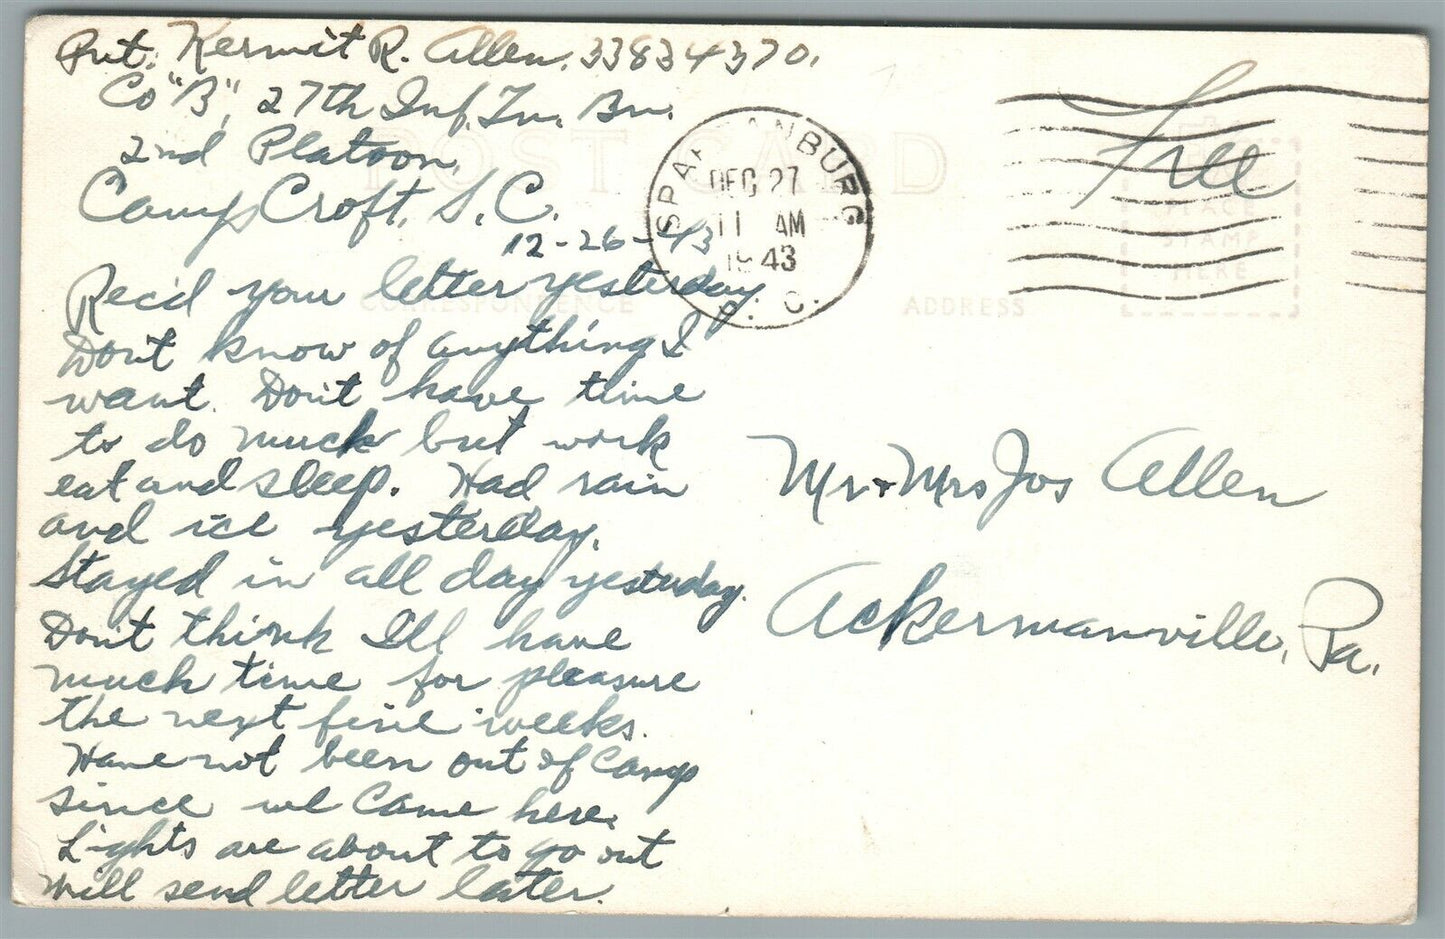 Pvt. Kermit R. Allen. 33834370.
Co "B", 27th Inf. Tn. Bn.
2nd Platoon,
Camp Croft, S.C.
12-26-43
Rec'd your letter yesterday
Don't know of anything I
want. Don't have time
to do much but work
eat and sleep. Had rain
and ice yesterday.
Stayed in all day yesterday.
Don't think I'll have
much time for pleasure
the next five weeks.
Have not been out of Camp
since we came here.
Lights are about to go out
Will send letter later.
POST CARD
CORRESPONDENCE
ADDRESS
SPARTANBURG
DEC 27
11 AM
1943
S. C.
Free
PLACE
STAMP
HERE
Mr & Mrs Jos Allen
Ackermanville, Pa.